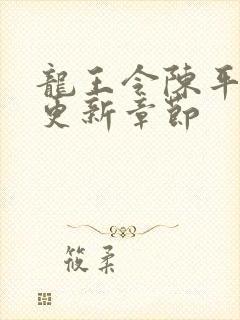 龍王令陳平
更新章節
筱柔